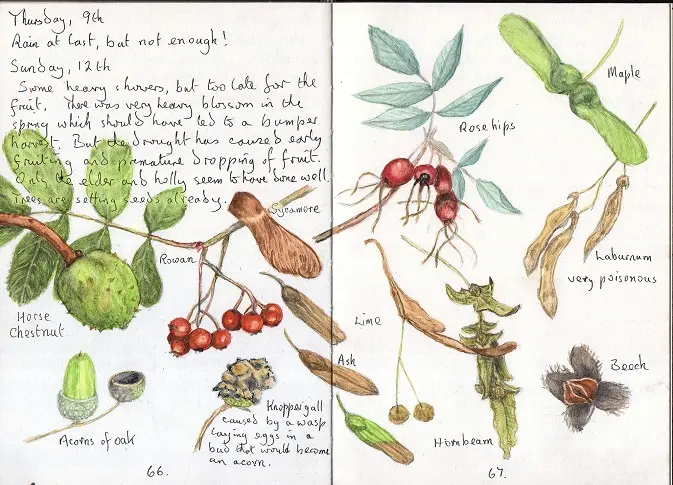 Thursday, 9th
Rain at last, but not enough!
Sunday, 12th
Some heavy showers, but too late for the
fruit. There was very heavy blossom in the
spring which should have led to a bumper
harvest. But the drought has caused early
fruiting and premature dropping of fruit.
Only the elder and holly seem to have done well.
Trees are setting seeds already.
Sycamore
Rowan
Horse
Chestnut
Acorns of oak
Knopper gall
caused by a wasp
laying eggs in a
bud that would become
an acorn.
66.
Rosehips
Maple
Laburnum
very poisonous
Lime
Ash
Hornbeam
Beech
67.